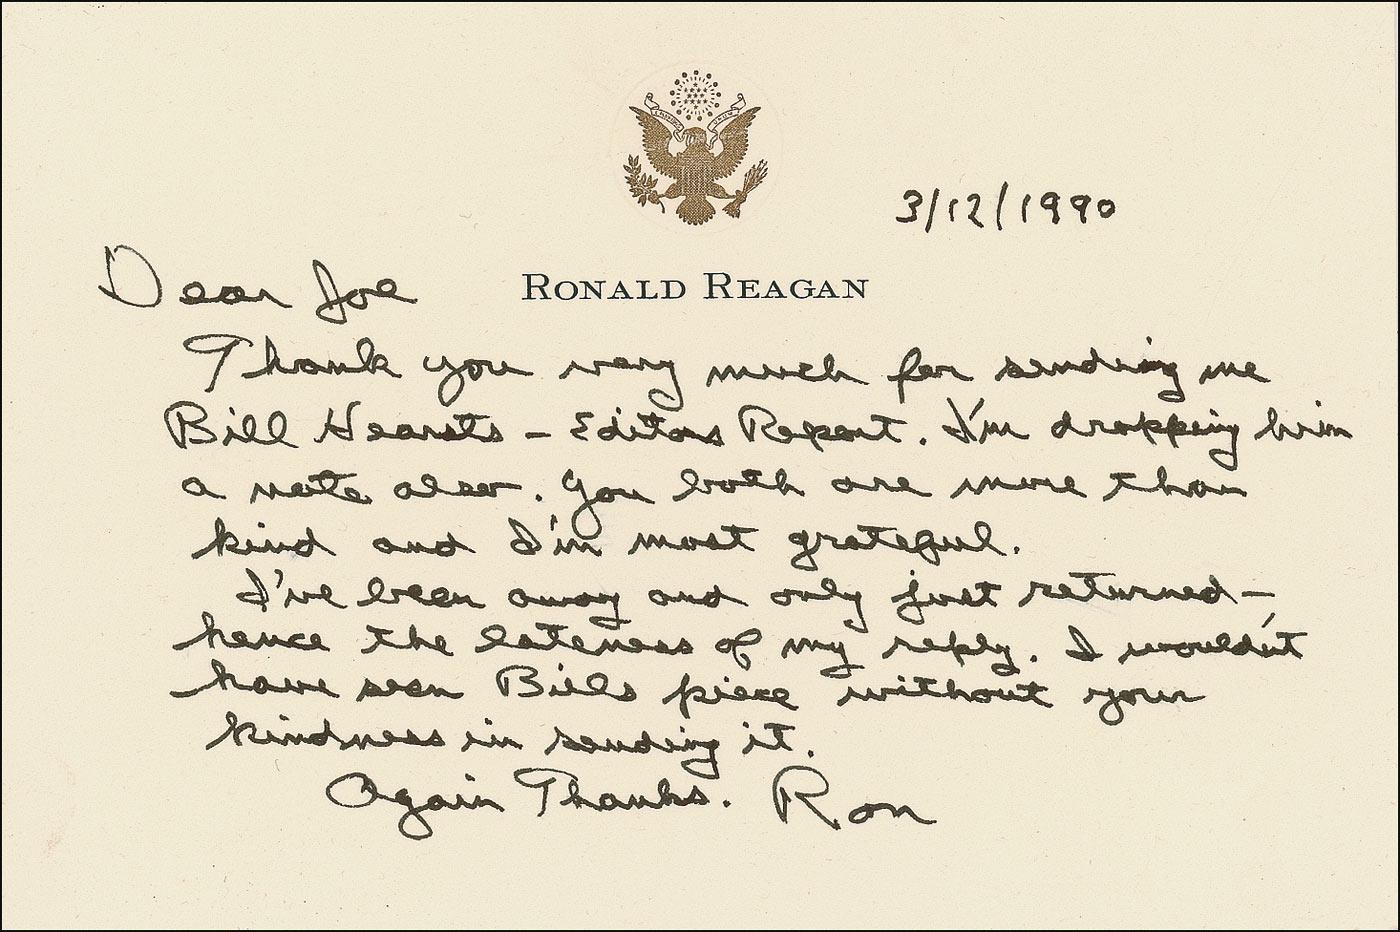 3/12/1990
RONALD REAGAN
Dear Joe
Thank you very much for sending me
Bill Hearsts – Editors Report. I'm dropping him
a note also. You both are more than
kind and I'm most grateful.
I've been away and only just returned –
hence the lateness of my reply. I wouldn't
have seen Bills piece without your
kindness in sending it.
Again Thanks. Ron